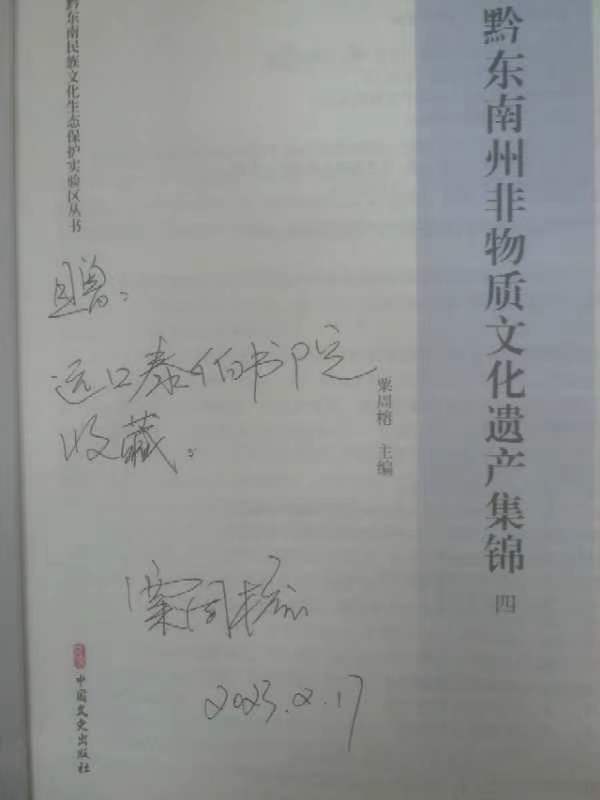 黔东南州非物质文化遗产集锦 四
粟周榕 主编
黔东南民族文化生态保护实验区丛书
赠:
远口泰伯书院
收藏。
粟周榕
2023.2.17
中国文史出版社